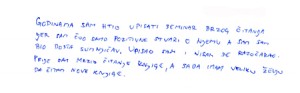 GODINAMA SAM HTIO UPISATI SEMINAR BRZOG ČITANJA
JER SAM ČUO SAMO POZITIVNE STVARI O NJEMU A SAM SAM
BIO DOSTA SUMNJIČAV. UPISAO SAM I NISAM SE RAZOČARAO.
PRIJE SAM MRZIO ČITANJE KNJIGE, A SADA IMAM VELIKU ŽELJU
DA ČITAM NOVE KNJIGE.